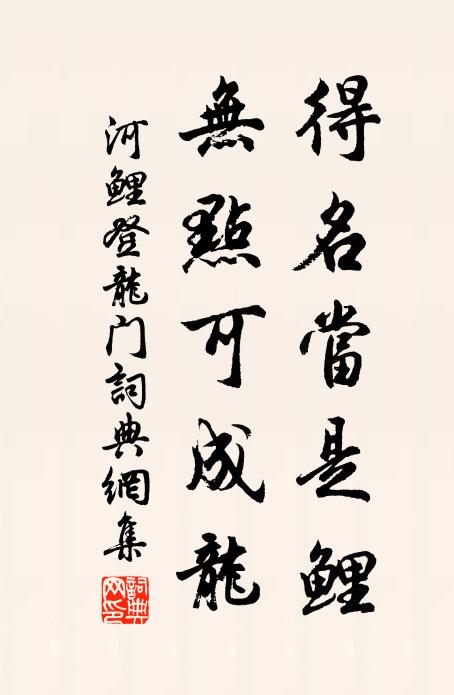 得名當是鯉
無點可成龍
河鯉登龍门詞典網集
詞典网印